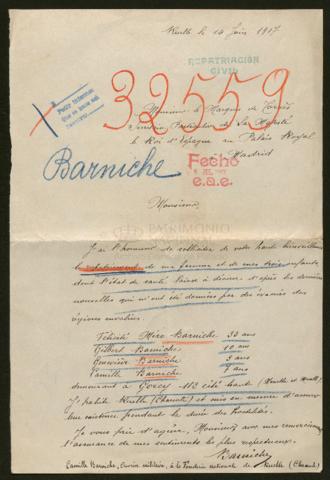 Ruelle le 14 Juin 1917
REPATRIACION
CIVIL
32559
Pedir informes
Monsieur le Marquis de Torrès
Secrétaire Particulier de Sa Majesté
le Roi d'Espagne au Palais Royal
Madrid
Barniche
Fecho
e.a.e.
Monsieur,
PATRIMONIO
J'ai l'honneur de solliciter de votre haute bienveillance
le rapatriement de ma femme et de mes trois enfants
dont l'état de santé laisse à désirer d'après les dernières
nouvelles qui m'ont été données par des évacués des
régions envahies.
Félicité Barniche 33 ans
Gilbert Barniche 10 ans
Geneviève Barniche
Camille Barniche
demeurant à Gorcy 113 cité haute (Meurthe et Moselle)
J'habite Ruelle (Charente) et suis en mesure d'assurer
leur existence pendant la durée des hostilités.
Je vous prie d'agréer, Monsieur avec mes remerciements
l'assurance de mes sentiments les plus respectueux.
Barniche
Camille Barniche, Ouvrier militaire, à la Fonderie nationale de Ruelle (Charente)